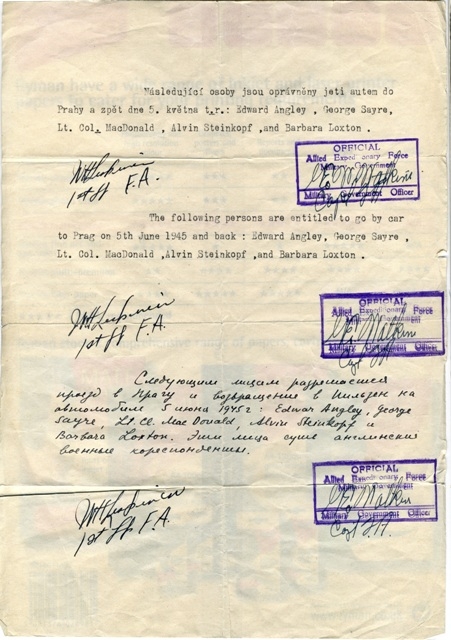 Následující osoby jsou oprávněny jeti autem do
Prahy a zpět dne 5. května t.r.: Edward Angley , George Sayre,
Lt. Col. MacDonald , Alvin Steinkopf ,and Barbara Loxton .
OFFICIAL
Allied Expeditionary Force
Government
Military Government Officer
1st Lt F.A.
The following persons are entitled to go by car
to Prag on 5th June 1945 and back : Edward Angley, George Sayre ,
Lt. Col. MacDonald ,Alvin Steinkopf ,and Barbara Loxton .
OFFICIAL
Allied Expeditionary Force
Military Government Officer
1st Lt F.A.
Следующим лицам разрешается
проезд в Прагу и возвращение в Пильзен на
автомобиле 5 июня 1945 г: Edwar Angley, George
Sayre, Lt. Cl. Mac Donald, Alvin Steinkopf и
Barbara Loston. Эти лица суть английския
военные кореспонденти.
OFFICIAL
Allied Expeditionary Force
Military Government
Military Government Officer
1st Lt F.A.
Capt FA.